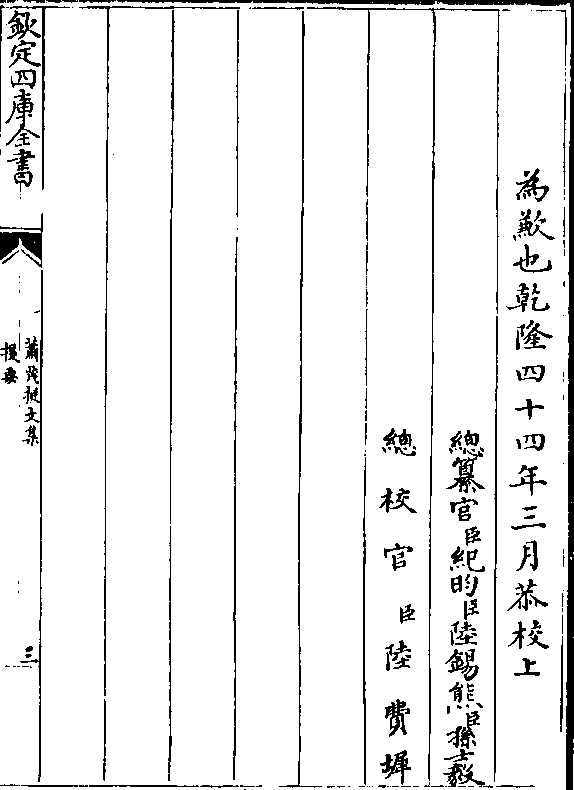 為歉也乾隆四十四年三月恭校上
總纂官臣紀昀臣陸錫熊臣孫士毅
總校官臣陸費墀
欽定四庫全書
蕭茂挺文集
提要
三